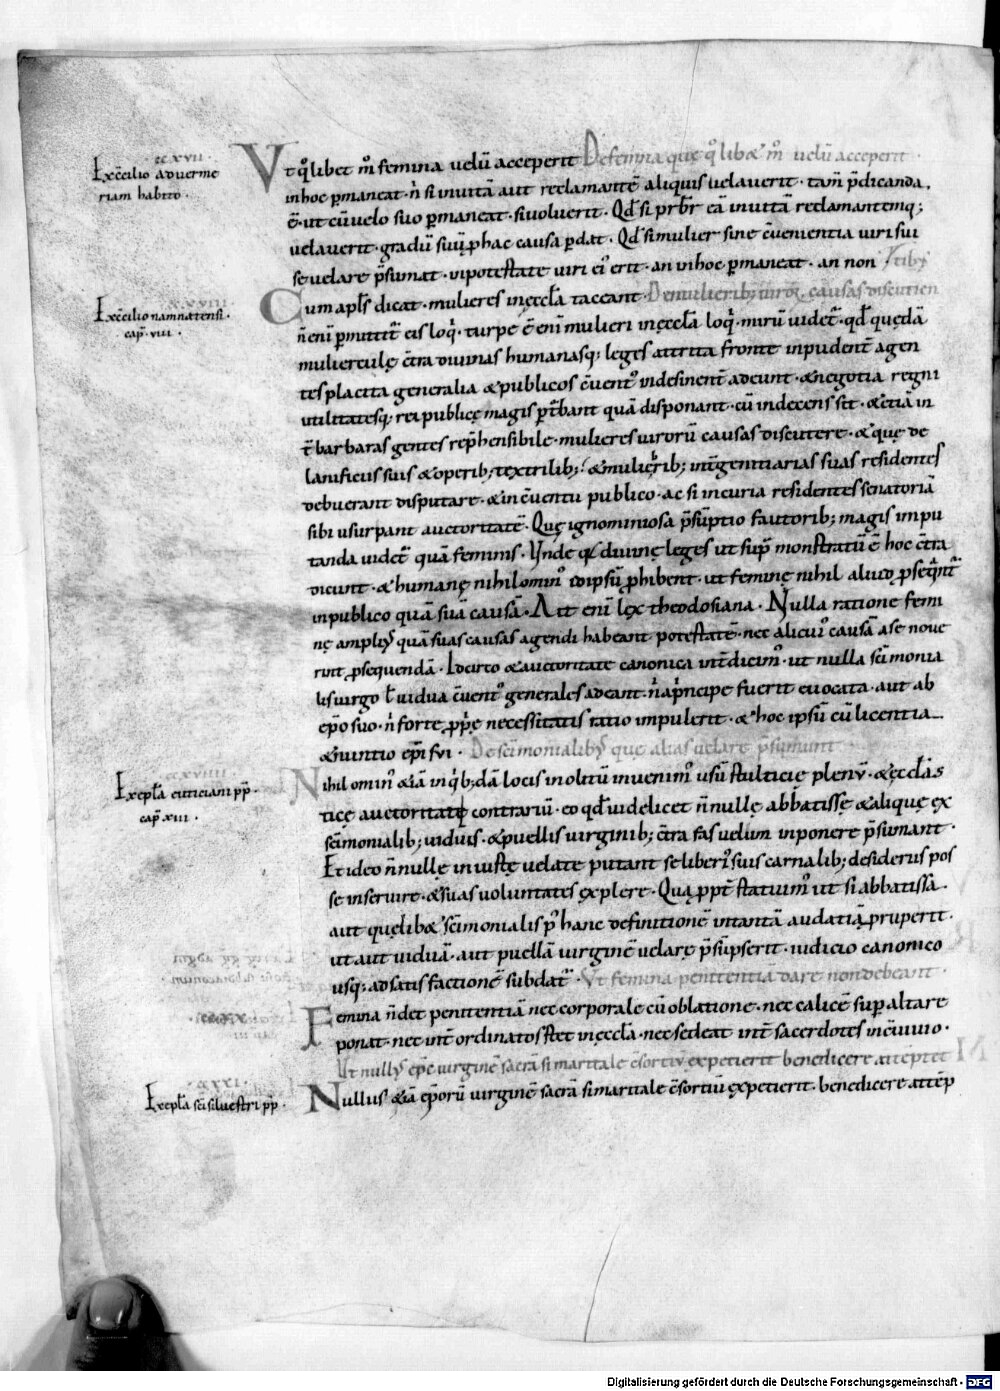 cc xvii ·
Excc̄ilio ad verme
riam habito ·
Vt q̊libet m̊ femina uelū acceperit De femina que q̊libet m̊ uelū acceperit ·
in hoc ꝑmaneat · n̄ si inuitā aut reclamantē aliquis uelauerit · tam̄ p̄dicanda ·
ē · ut cū uelo suo ꝑmaneat · si uoluerit · Qd̄ si prb̄r eā inuitā reclamantemq;
uelauerit · gradū suū ꝓ hac causa ꝑdat · Qd̄ si mulier sine c̄uenientia uiri sui
se uelare p̄sumat · in potestate uiri ei᾽ erit · an in hoc ꝑmaneat · an non
xxviii ·
Excc̄ilio namnatensi ·
cap̄ · viii ·
Cum apl̄s dicat · mulieres in ęccl̄a taceant · De mulierib; uiroꝝ causas discutien tib᾽
n̄ enī ꝑmittit̄ eis loq̇ · turpe ē enī mulieri in ęccl̄a loq̇ · mirū uidet̄ · qd̄ quędā
mulierculę c̄tra diuinas humanasq; leges attrita fronte inpudent̄ agen
tes placita generalia & publicos c̄uent᾽ indesinent̄ adeunt · & negotia regni
utilitatesq; rei publicę magis ꝑt̄bant quā disponant · cū indecens sit · & etiā in
t̄ barbaras gentes rep̄hensibile · mulieres uirorū causas discutere · & quę de
lanificiis suis & operib; textrilib; & mulierib; int̄ genitiarias suas residentes
debuerant disputare · & in c̄uentu publico · ac si in curia residentes senatoriā
sibi usurpant auctoritatē · Quę ignominiosa p̄sūptio fautorib; magis impu
tanda uidet̄ quā feminis · Vnde q̇a diuinę leges ut sup̄ monstratū ē hoc c̄tra
dicunt · & humanę nihilomin᾽ id ipsū ꝓhibent · ut feminę nihil aliud ꝓseq̇nt̄
in publico quā suā causā · Ait enī lex theodosiana · Nulla ratione femi
nę ampli᾽ quā suas causas agendi habeant potestatē · nec alicui᾽ causā a se noue
rint ꝓsequendā · Idcirco & auctoritate canonica int̄dicim᾽ · ut nulla sc̄imonia
lis uirgo ł uidua c̄uent᾽ generales adeant · n̄ a p̄ncipe fuerit euocata · aut ab
ep̄o suo · n̄ forte ꝓp̄ę necessitatis ratio impulerit · & hoc ipsū cū licentia
& nuntio ep̄i sui · De sc̄imonialib᾽ que alias uelare p̄sumunt
xxviiii ·
Ex epl̄a euticiani pp̄ ·
cap̄ xiii ·
Nihilomin᾽ & iā in q̇b;dā locis inolitū inuenim᾽ usū stulticię plenū · & ęccl̄as
ticę auctoritate contrariū · eo qd̄ uidelicet n̄nullę abbatissę & aliquę ex
sc̄imonialib; uiduis · & puellis uirginib; c̄tra fas uelum inponere p̄sumant ·
Et ideo n̄nullę iniustę uelate putant se liberi᾽ suis carnalib; desideriis pos
se inseruire · & suas uoluntates explere · Quą ꝓpt̄ statuim᾽ ut si abbatissa
aut quęlibet sc̄imonialis p᾽ hanc definitionē in tantā audatiā ꝓruperit ·
ut aut uiduā · aut puellā uirginē uelare p̄sūpserit · iudicio canonico
usq; ad satisfactionē subdat̄ · Vt femina penitentiā dare non debeant ·
Femina n̄ det penitentiā nec corporale cū oblatione · nec calicē sup̄ altare
ponat · nec int̄ ordinatos stet in ęccl̄a · nec sedeat int̄ sacerdotes in c̄uiuio ·
Vt null᾽ ep̄c uirginē sacrā si maritale c̄sortiū expetierit benedicere attēptet
xxxi ·
Ex epl̄a sc̄i siluestri pp̄ ·
Nullus & iā ep̄orū uirginē sacrā si maritale c̄sortiū expetierit · benedicere attēp
Digitalisierung gefördert durch die Deutsche Forschungsgemeinschaft · DFG